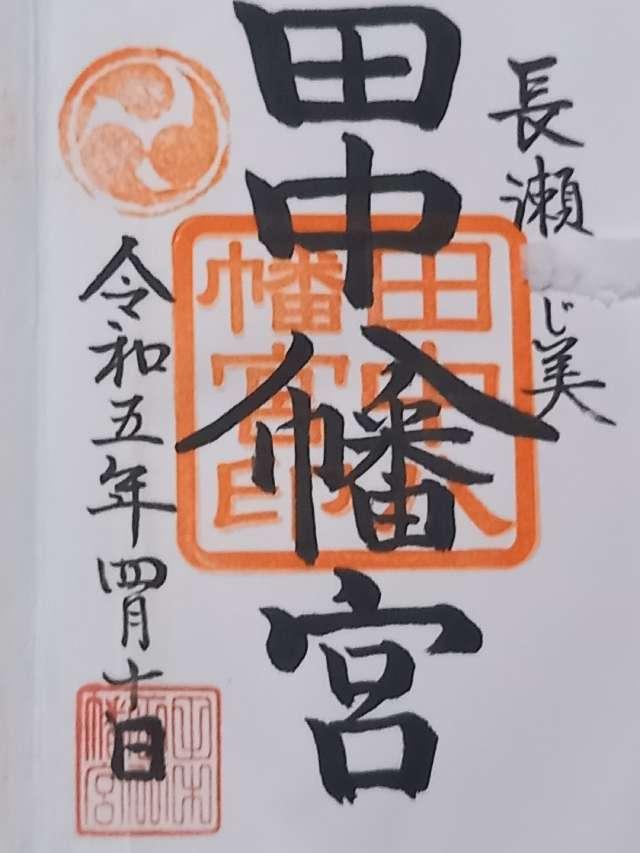 長瀬
じ美
田中八幡宮
田中八
幡宮印
令和五年四月十日